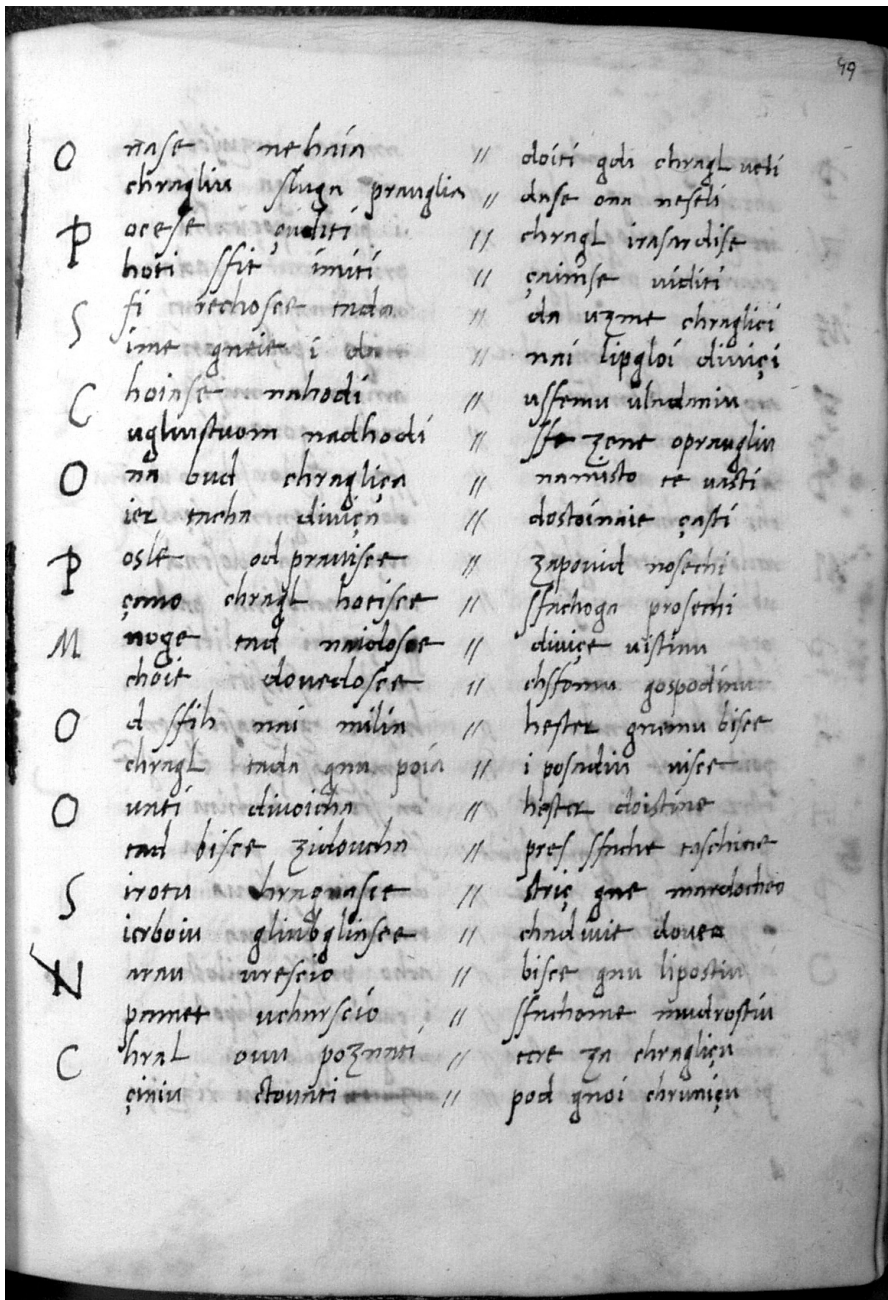 49
O nase nehaia // doiti gdi chragl veli
chragliu sluga prauglia // dase ona neseli
P ocese çuditi // chragl irasardise
hoti ssie imiti // çaimse viditi
S fi rechosce tada // da uzme chraglici
ime gneie i da // nai lipgloi diviçi
C hoiase nahodi // ussemu vladaniu
vgliustuom nadhodi // sse zene opraugliu
O na bud chragliça // namisto te vasti
ier tacha diviça // dostoinaie çasti
P osle od prauisce // zapouid nosechi
çamo chragl hotisce // sfachoga prosechi
M noge tad naidosce // diviçe vistinu
choie douedosce // chsfomu gospodinu
O d ssih nai milia // hester gnemu bisce
chragl tada gnu poia // i posadiu visce
O vati divoicha // hester doistine
tad bisce zidoucha // pres sfache taschine
S irotu hragnasce // striç gne mardocheo
ierboiu gliubgliasce // chadvie doueo
N arau urescio // bisce gnu lipostiu
pamet ucharscio // sfachome mudrostiu
C hral ouu poznati // tere za chragliçu
çiniu ctouati // pod gnoi chruniçu